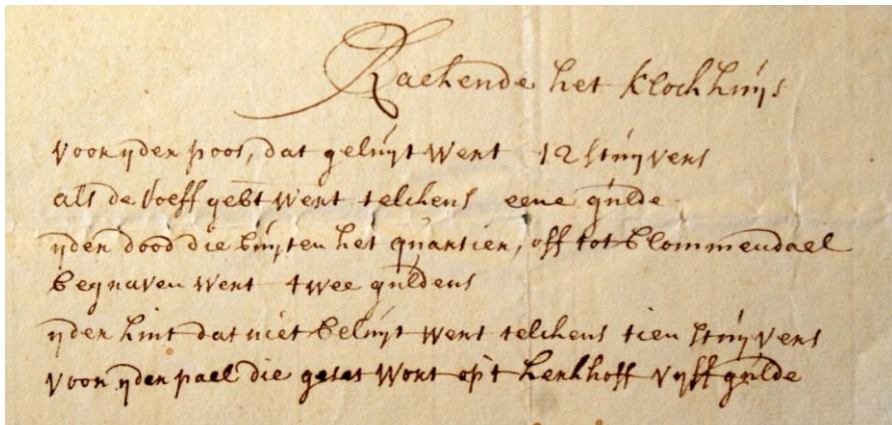 Rackende het klockhuijs
voor ijder poos, dat geluijt wert 12 stuijvers
als de
gebt wert telckens eene gulde
ijder dood die buijten het quartier, off tot blommendael
begraven wert twee guldens
ijder kint dat niet beluijt wert telckens tien stuijvers
voor ijder pael die geset wort op't kerkhoff vijff gulde